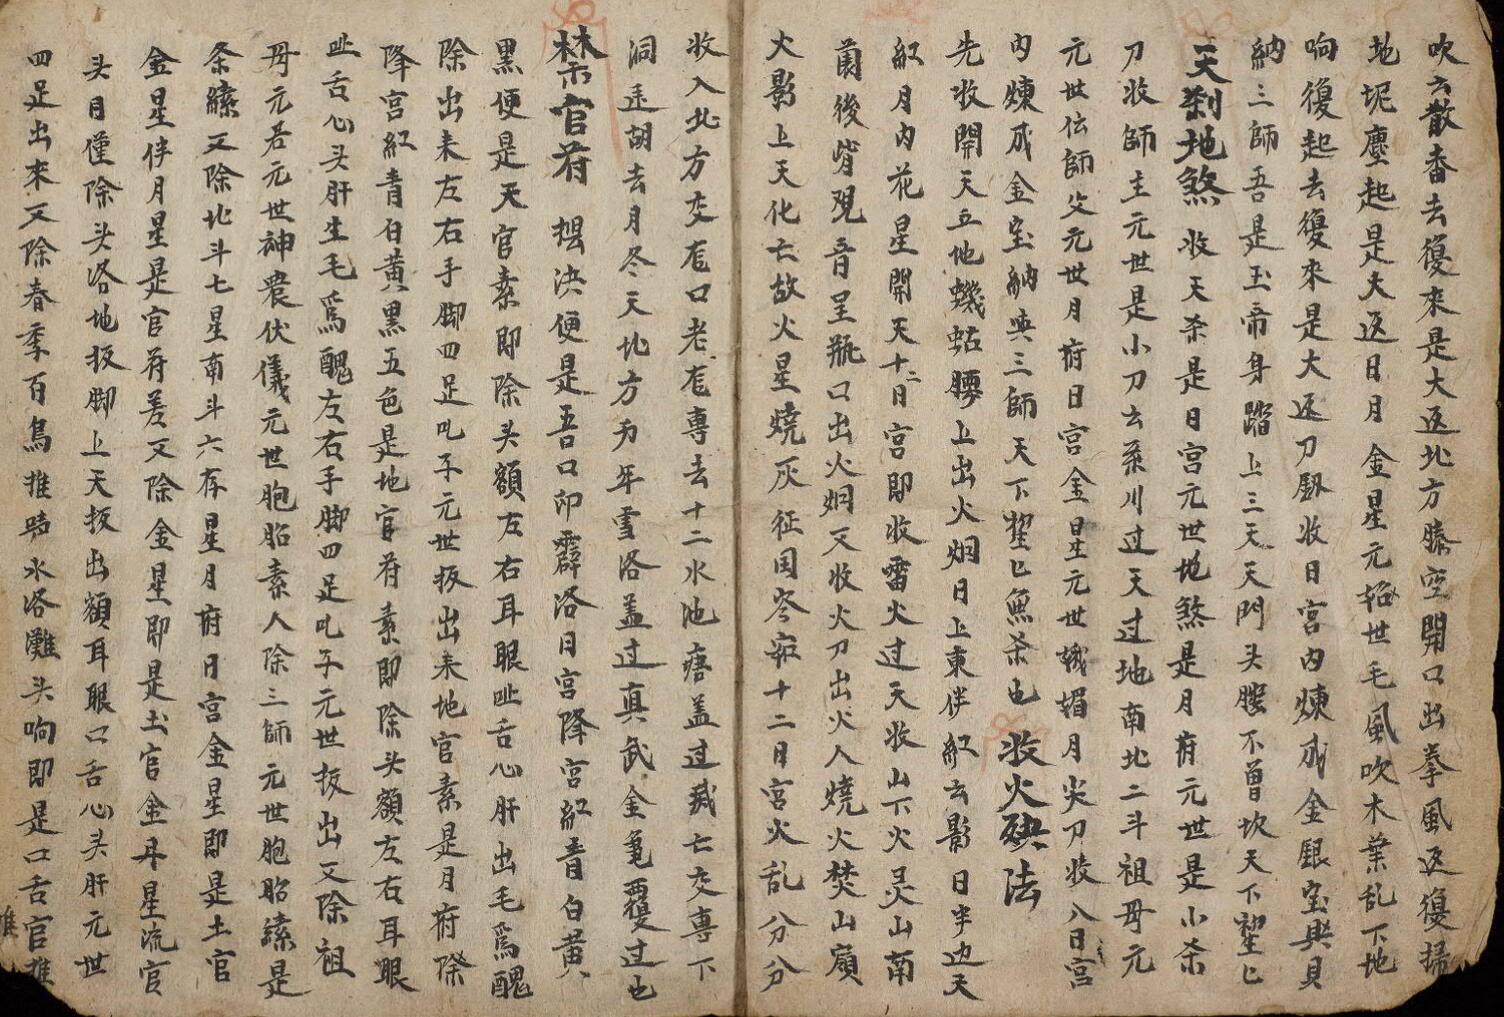 吹云散番去復來是大返北方滕空開口出拳風返復掃
地坭塵起是大返日月金星元抬世毛風吹木葉乱下地
响復起去復來是大返刀釼收日宮內煉成金銀宝與貝
納三師吾是玉帝身踏上三天天門头腟不曽坎天下翟已
天刹地煞 收天杀是日宮元世地煞是月府元世是小杀
刀收師主元世是小刀去系川过天过地南北二斗祖母元
元世伝師父元世月府日宮金星元世娥媚月尖刀收八日宮
內煉成金宝納與三師天下翟已魚杀也 收火砄法
先收開天立地蟣蛄腰上出火烟日上東伴紅云影日半边天
紅月內花星開天十二日宮即收雷火过天收山下火灵山南
蘭後背覌音呈瓶口出火烟又收火刀出火入燒火焚山嶺
火影上天化亡故火星燒灰征国岑䆟十二日宮火乱分分
收入北方交𤴓口老𤴓專去十二水池瘩盖过冣亡交專下
洞逹胡去月冬天北方为年雪洛盖过真武金龟覆过也
禁官府 㨪決便是吾口卬霹洛日宮降宮紅青白黄
黑便是天官素即除头額左右耳眼呲舌心肝出毛爲醜
除出来左右手脚四足叱子元世扳出来地官素是月府除
降宮紅青白黄黒五色是地官府素即除头額左右耳眼
呲舌心头肝生毛爲醜左右手脚四足叱子元世扳出又除祖
母元若元世神農伏儀元世胞胎素人除三師元世胞胎縤是
条縤又除北斗七星南斗六存星月府日宮金星即是土官
金星伴月星是官府差又除金星即是土官金丹星流官
头目僅除头洛地扳脚上天扳出額耳眼口舌心头肝元世
四足出來又除春季百鳥推啼水洛灘头响即是口舌官推